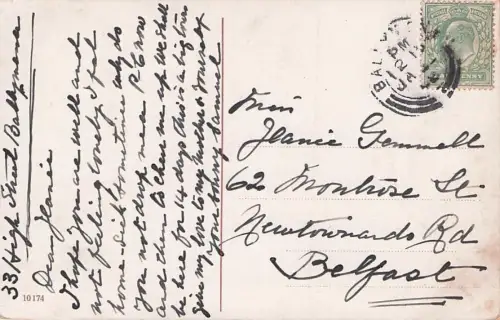 33 High Street Ballymena
Dear Jeanie
I hope you are well and
not feeling lonely I felt
home sick sometime why do
you not drop me a P C now
and then to cheer me up we shall
be here for 14 days this is a big town
give my love to my mother & yourself
your loving Samuel
10174
Miss
Jeanie Gemmell
62 Montrose St
Newtownards Rd
Belfast
BALLY
PM
PENNY